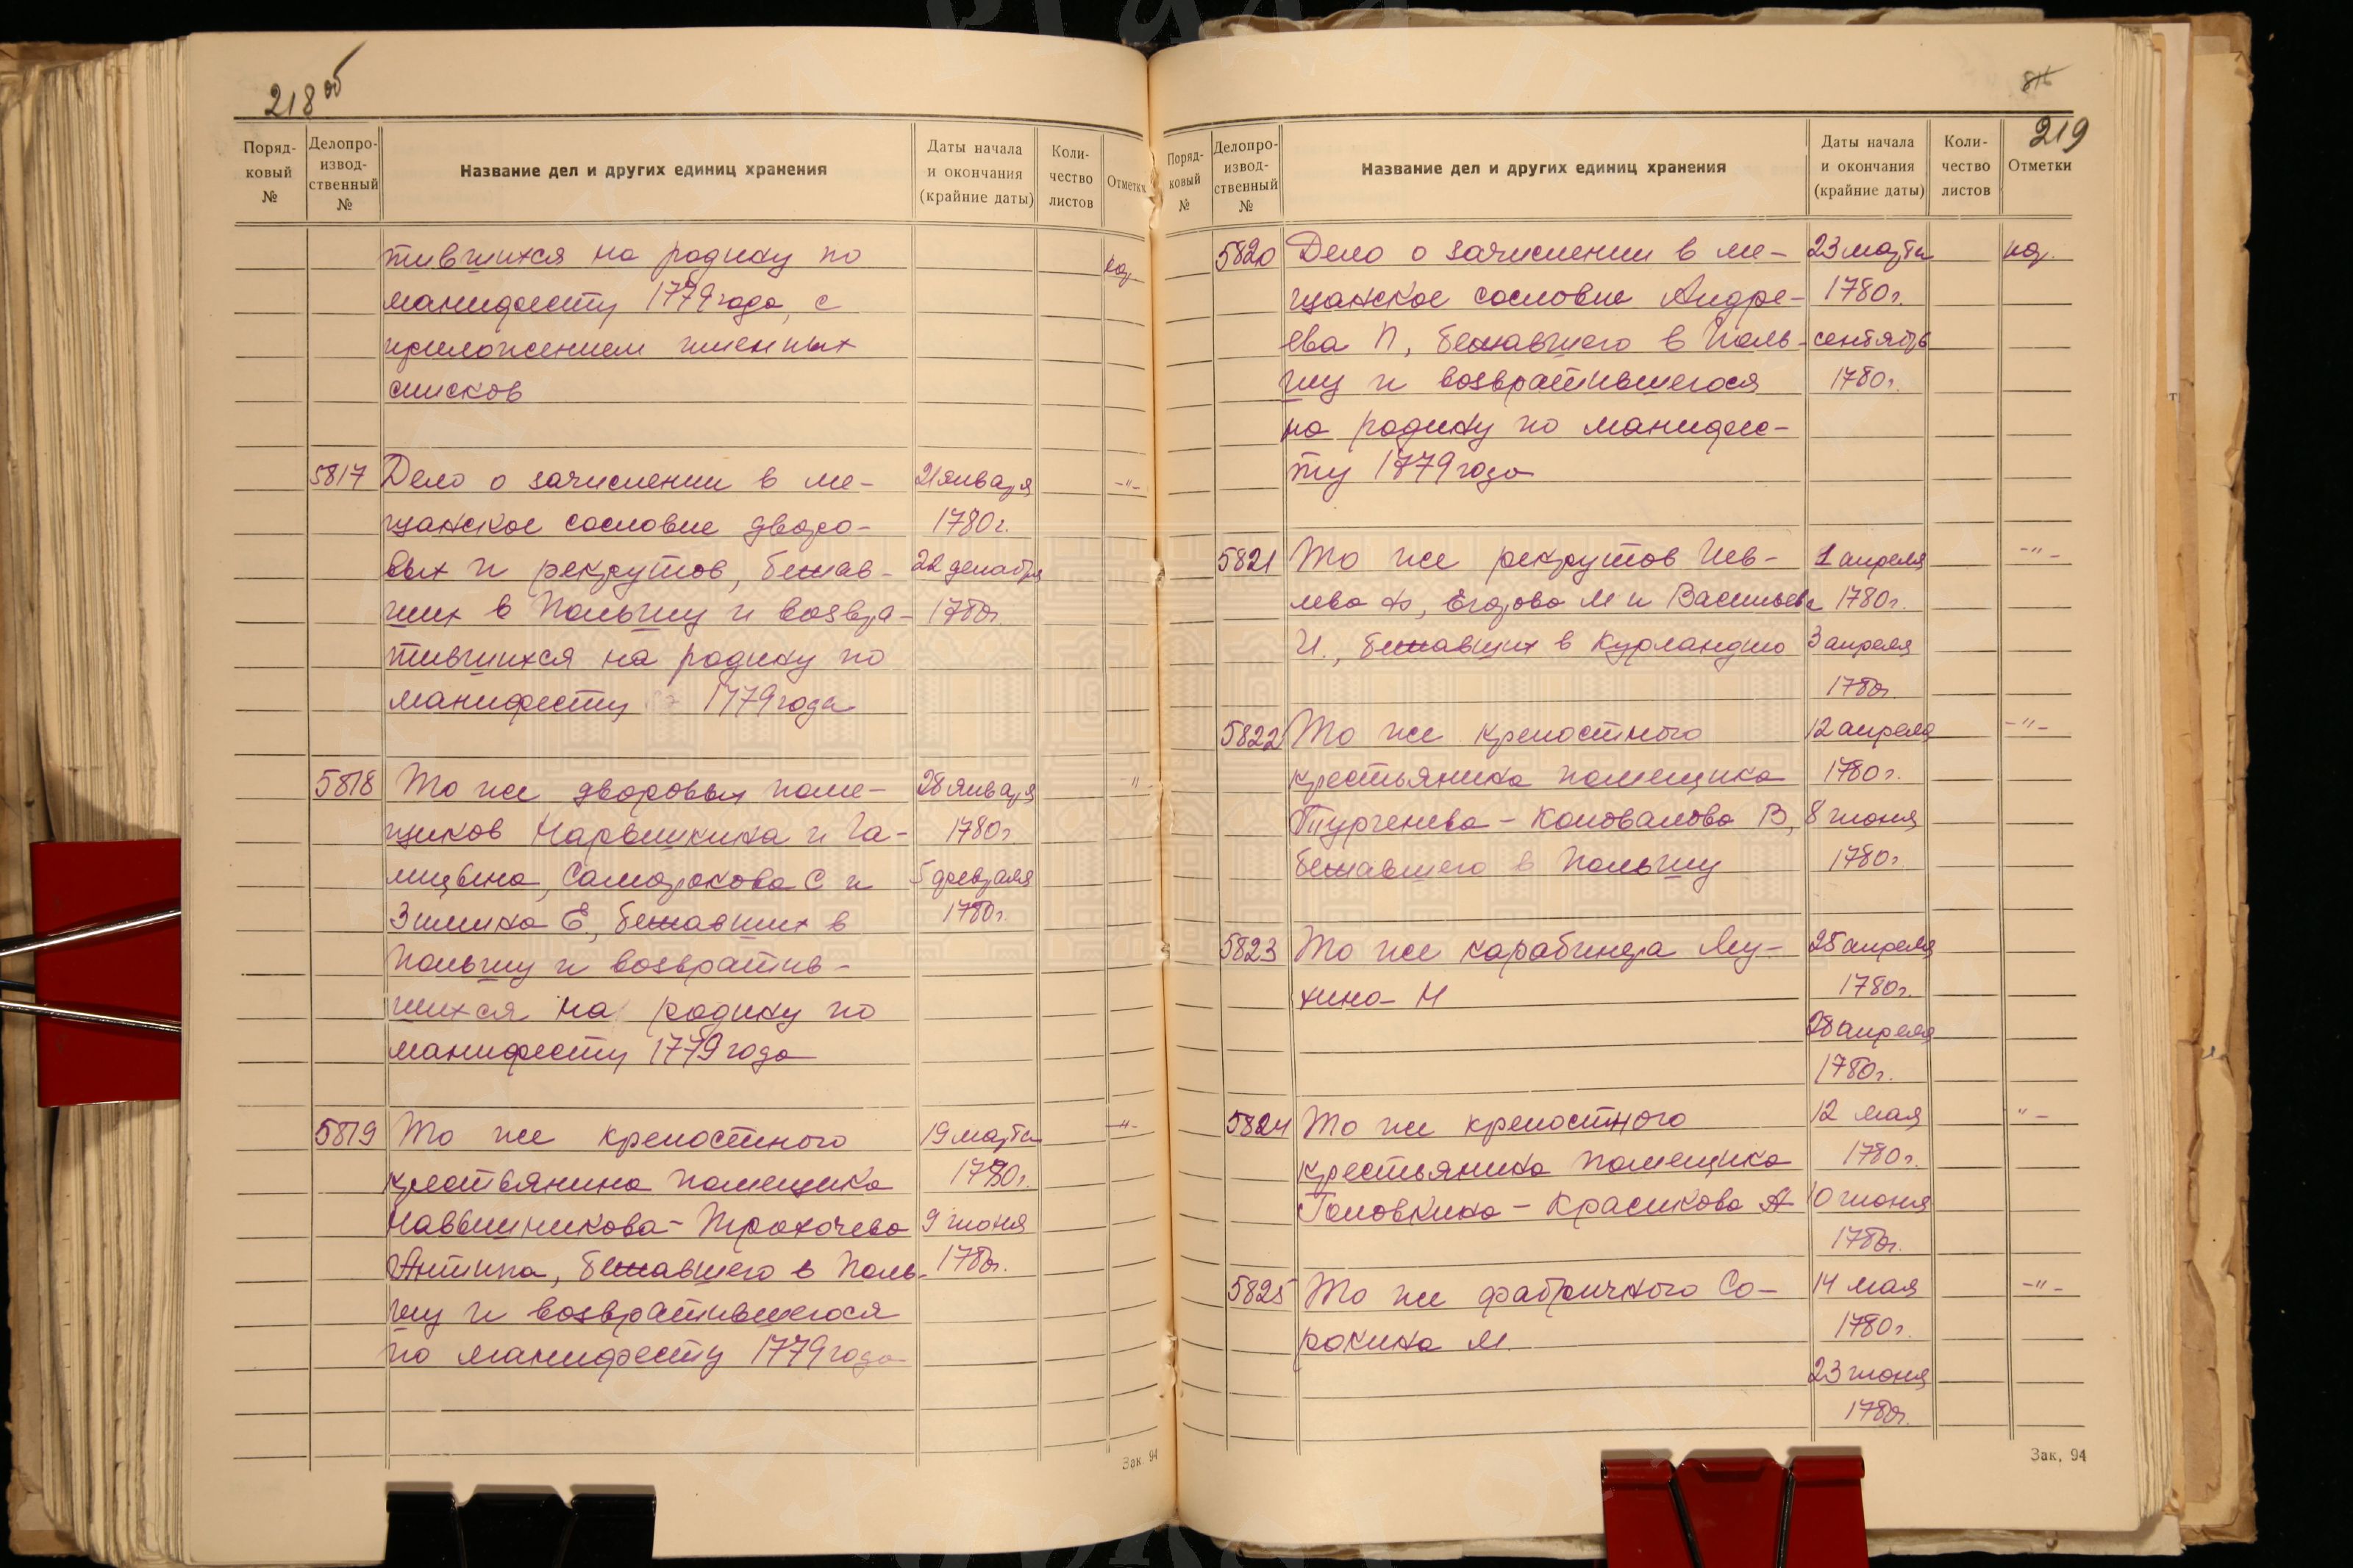 218 об
Поряд-
ковый
№
Делопро-
извод-
ственный
№
Название дел и других единиц хранения
Даты начала
и окончания
(крайние даты)
Коли-
чество
листов
Отметки
тившихся на родину по
манифесту 1779 года, с
приложением именных
списков
5817 Дело о зачислении в ме- 21 января -"-
щанское сословие дворо- 1780 г.
вых и рекрутов, бежав- 22 декабря
ших в Польшу и возвра- 1780 г.
тившихся на родину по
манифесту 1779 года
5818 То же дворовых поме- 28 января "
щиков Нарышкина и Га- 1780 г.
лицына, Саморокова С и 5 февраля
Зимина Е., бежавших в 1780 г.
Польшу и возвратив-
шихся на родину по
манифесту 1779 года
5819 То же крепостного 19 марта -"-
крестьянина помещика 1780 г.
9 июня
Антипа, бежавшего в Поль- 1780 г.
шу и возвратившегося
по манифесту 1779 года
Зак. 94
219
Поряд-
ковый
№
Делопро-
извод-
ственный
№
Название дел и других единиц хранения
Даты начала
и окончания
(крайние даты)
Коли-
чество
листов
Отметки
5820 Дело о зачислении в ме- 23 марта
щанское сословие Андре- 1780 г.
ева П, бежавшего в Поль- сентябрь
шу и возвратившегося 1780 г.
на родину по манифес-
ту 1779 года
5821 То же рекрутов Иев- 1 апреля -"-
лева Ф, Егорова М и Васильева 1780 г.
И., бежавших в Курляндию 3 апреля
1780 г.
5822 То же крепостного 12 апреля -"-
крестьянина помещика 1780 г.
Тургенева - Коновалова В, 8 июня
бежавшего в Польшу 1780 г.
5823 То же карабинера Му- 25 апреля
хина Н 1780 г.
28 апреля
1780 г.
5824 То же крепостного 12 мая "-
крестьянина помещика 1780 г.
Головкина - Красикова А 10 июня
1780 г.
5825 То же фабричного Со- 14 мая -"-
рокина М. 1780 г.
23 июня
1780 г.
Зак. 94